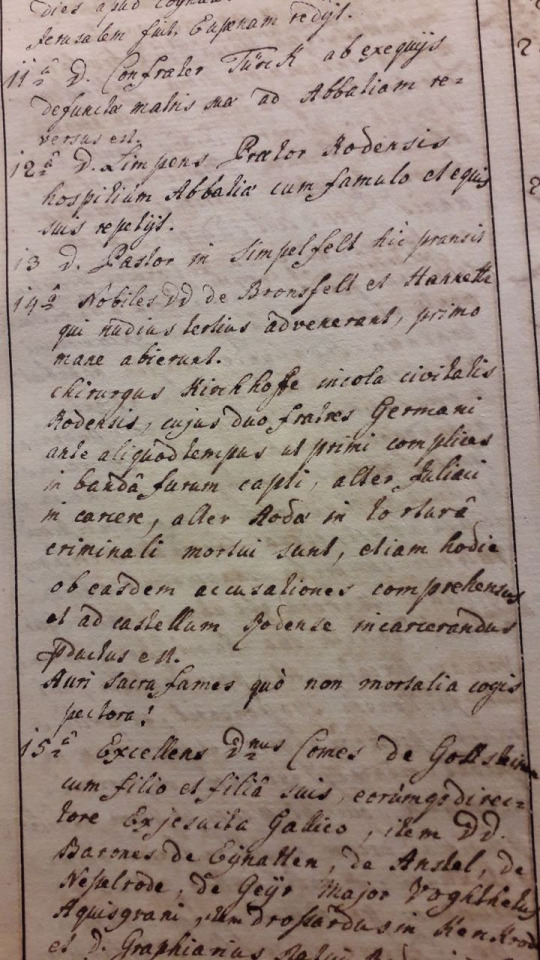 dies apud
Jerusalem fuit, Eupenam redijt.
11ª D. Confrater Türck ab exequijs
defunctæ matris suæ ad Abbatiam re=
versus est.
12ª D. Limpens Prætor Rodensis
hospitium Abbatiæ cum famulo et equis
suis repetijt.
13 D. Pastor in Simpelfelt hic pransit
14ª Nobiles DD de Bronsfelt et Hannette
qui nudius tertius advenerant, primo
mane abierunt.
Chirurgus Kirchhoffs incola civitatis
Rodensis, cujus duo fratres Germani
ante aliquod tempus ut primi complices
in bandâ furum capti, alter Juliaci
in carcere, alter Rodæ in torturâ
criminali mortui sunt, etiam hodie
ob easdem accusationes comprehensus
et ad castellum Rodense incarcerandus
ductus est.
Auri sacra fames quò non mortalia cogis
pectora!
15ª Excellens Dnus Comes de
cum filio et filiâ suis, eorumq direc=
tore Exjesuita Gallico, item DD.
Barones de Eÿnatten, de Anstel, de
Nesselrode, de Geÿr Major
Aquisgrani, in
et D. Graphiarius